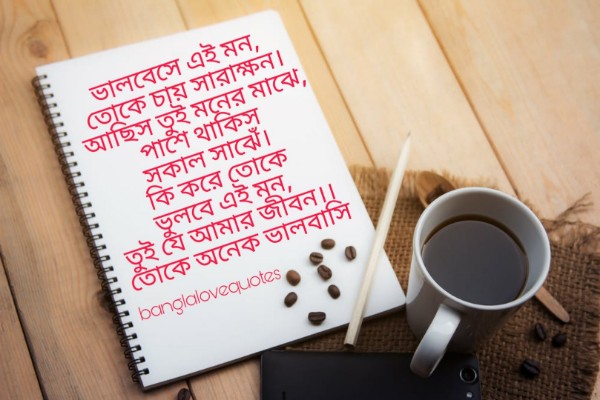 ভালবেসে এই মন,
তোকে চায় সারাক্ষন।
আছিস তুই মনের মাঝে,
পাশে থাকিস
সকাল সাঝেঁ।
কি করে তোকে
ভুলবে এই মন,
তুই যে আমার জীবন।।
তোকে অনেক ভালবাসি
banglalovequotes